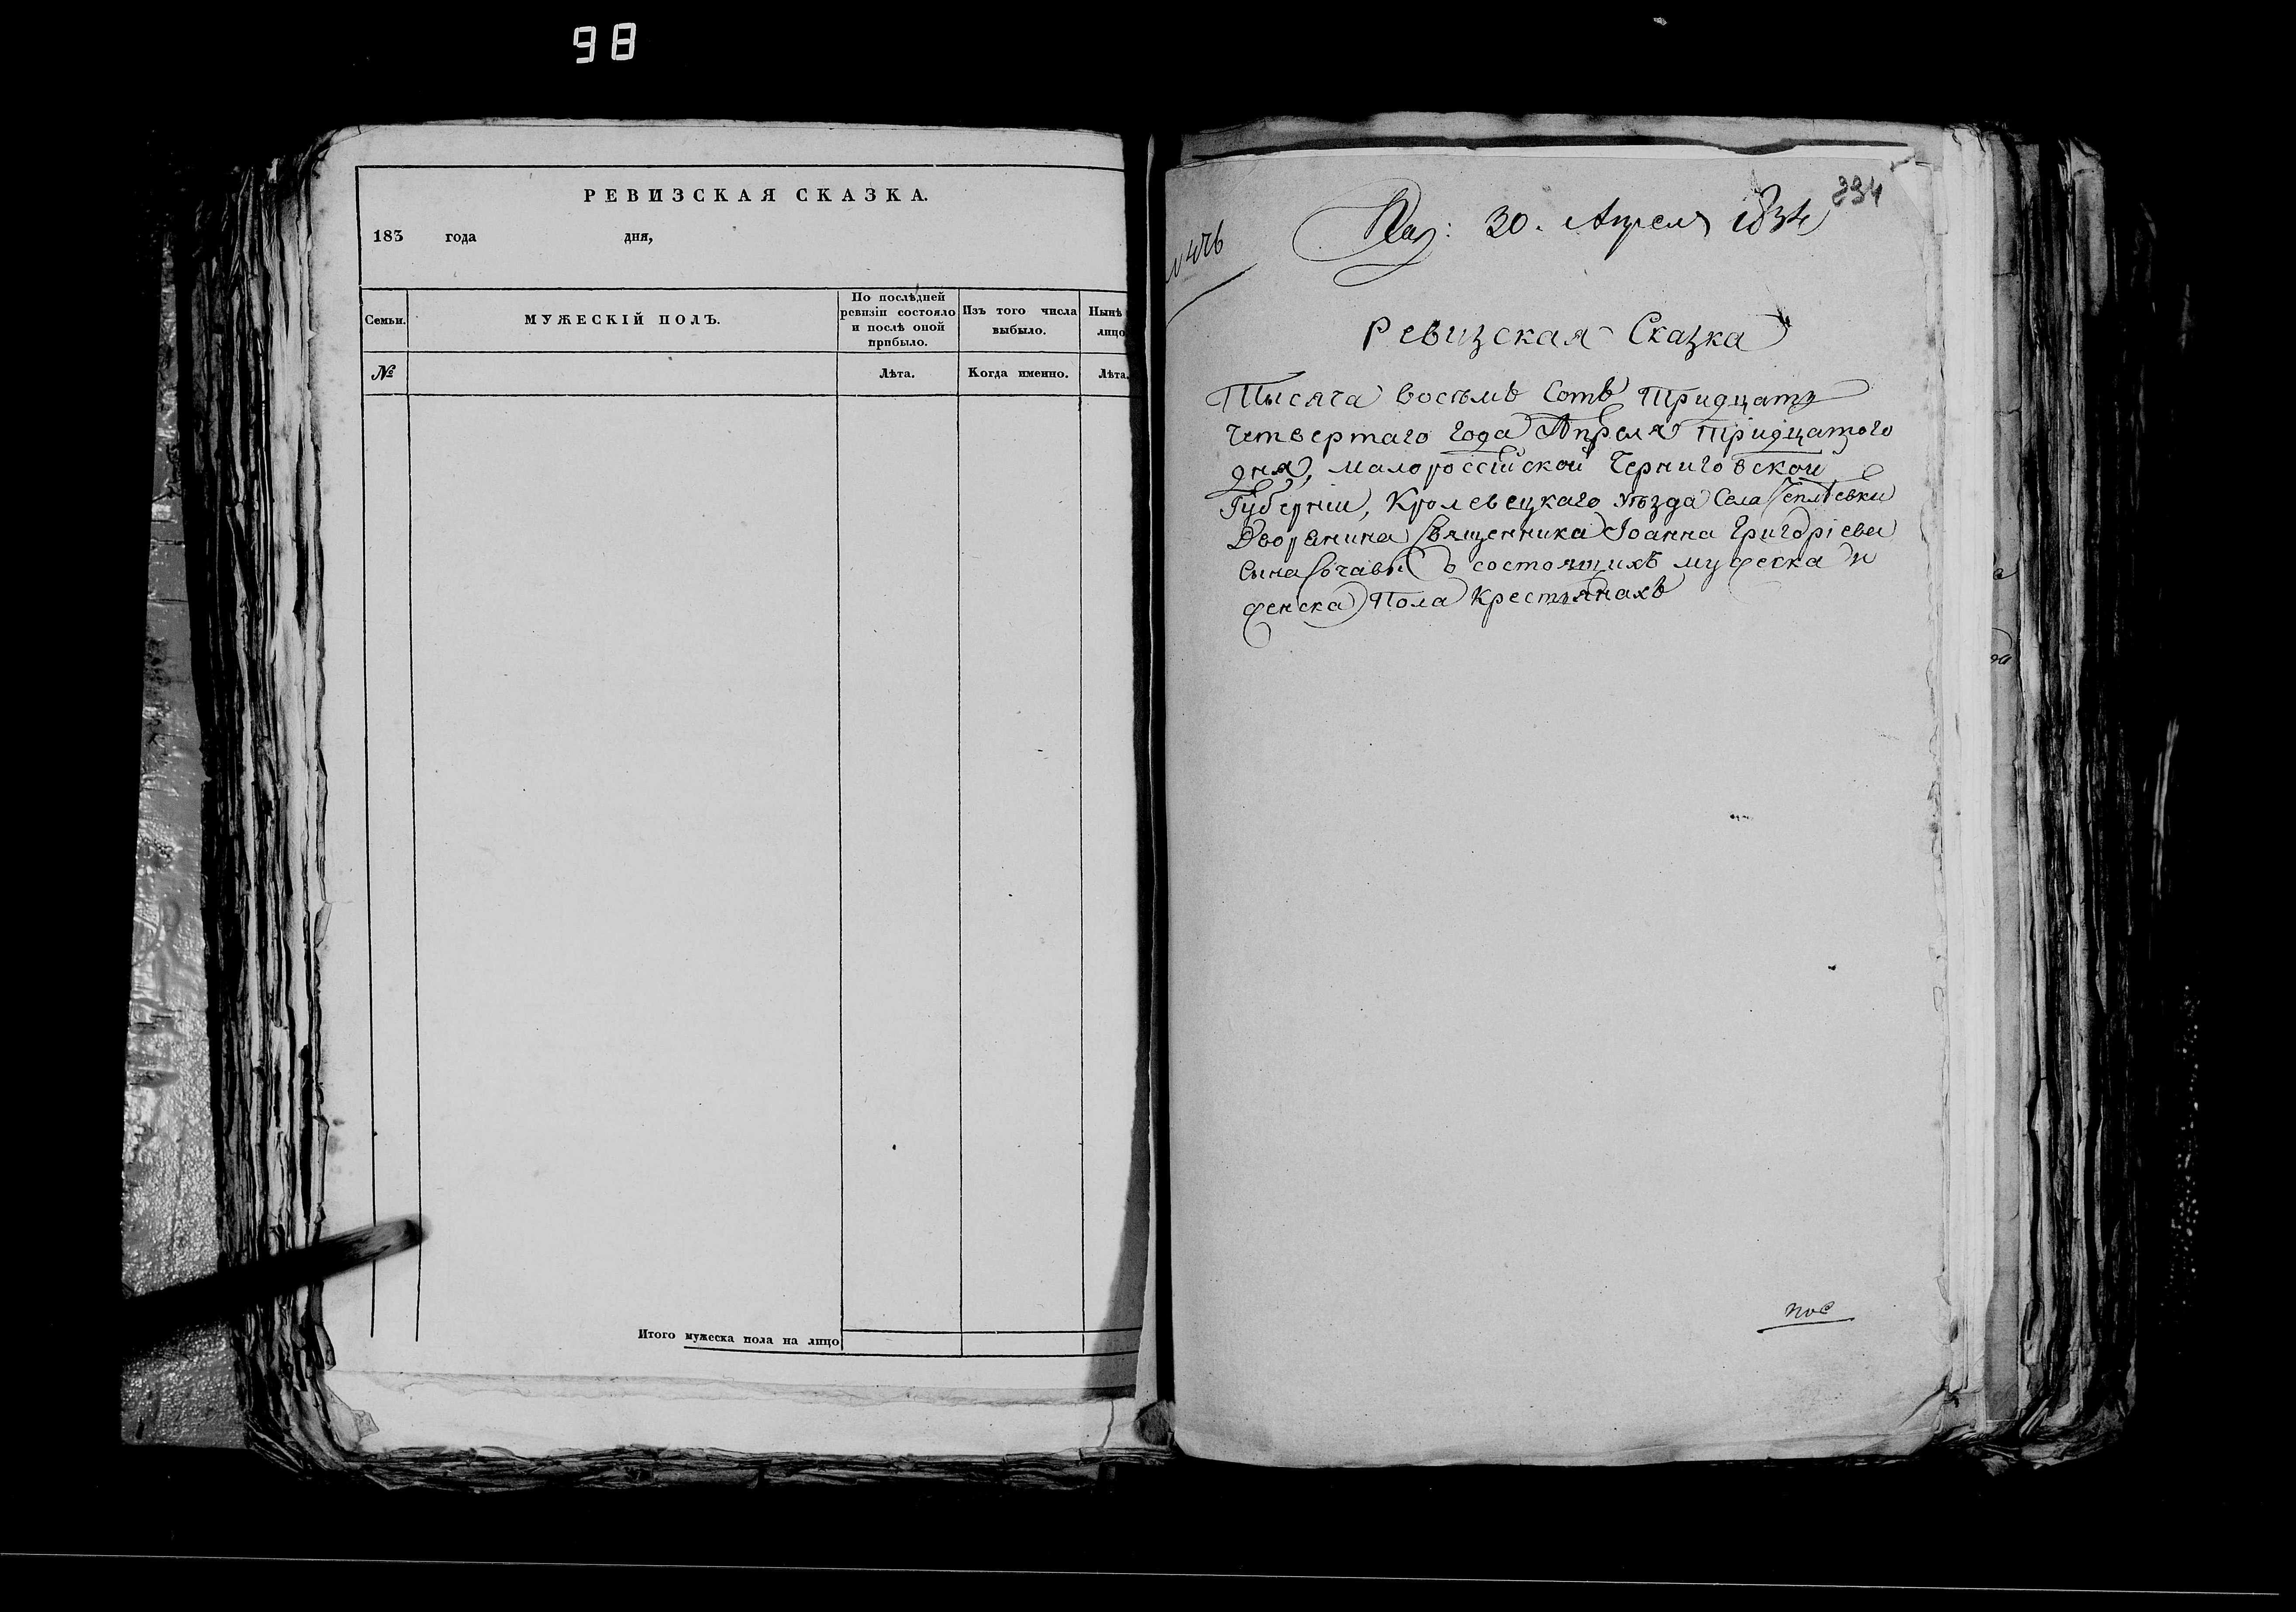 98
РЕВИЗСКАЯ СКАЗКА.
183 года дня,
Семьи.
МУЖЕСКІЙ ПОЛЪ.
По послѣдней
ревизіи состояло
и послѣ оной
прибыло.
Изъ того числа
выбыло.
Нынѣ
лицо
№
Лѣта.
Когда именно.
Лѣта.
Итого мужеска пола на лицо
394
30. Апреля 1834
Ревизская Сказка
Тысяча восемь Сотъ Тридцать
четвертаго года Апреля тридцатого
дня, малороссійской Черниговской
Губерніи, Кролевецкаго уѣзда Села
Дворянина Священника Іоанна Григоріева
Сына о состоящихъ мужеска и
женска Пола Крестьянахъ